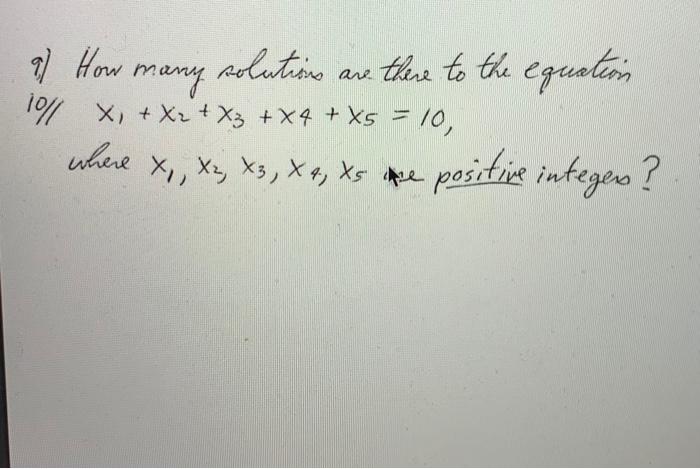 9) How many solutions are there to the equation
10// x₁ + x₂ + x₃ + x4 + x5 = 10,
where x₁, x₂, x₃, x4, x5 are positive integers?